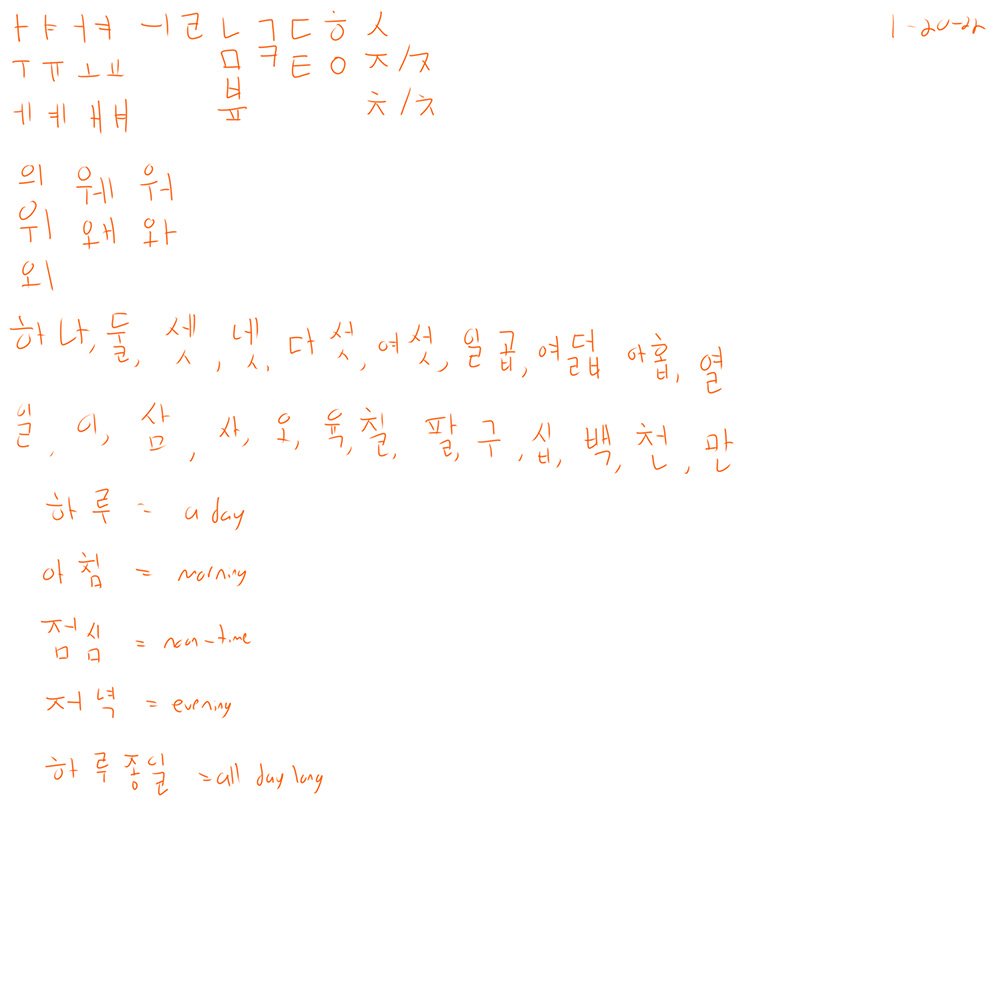 ㅏ ㅑ ㅓ ㅕ ㅡ ㅣ ㄹ ㄴ ㄱ ㄷ ㅎ ㅅ 1-20-22
ㅜ ㅠ ㅗ ㅛ ㅁ ㅋ ㅌ ㅇ ㅈ/ㅈ
ㅔ ㅖ ㅐ ㅒ ㅂ ㅊ/ㅊ
ㅍ
의 웨 워
위 왜 와
외
하나, 둘, 셋, 넷, 다섯, 여섯, 일곱, 여덟 아홉, 열
일, 이, 삼, 사, 오, 육, 칠, 팔, 구, 십, 백, 천, 만
하루 = a day
아침 = morning
점심 = noon-time
저녁 = evening
하루종일 = all day long